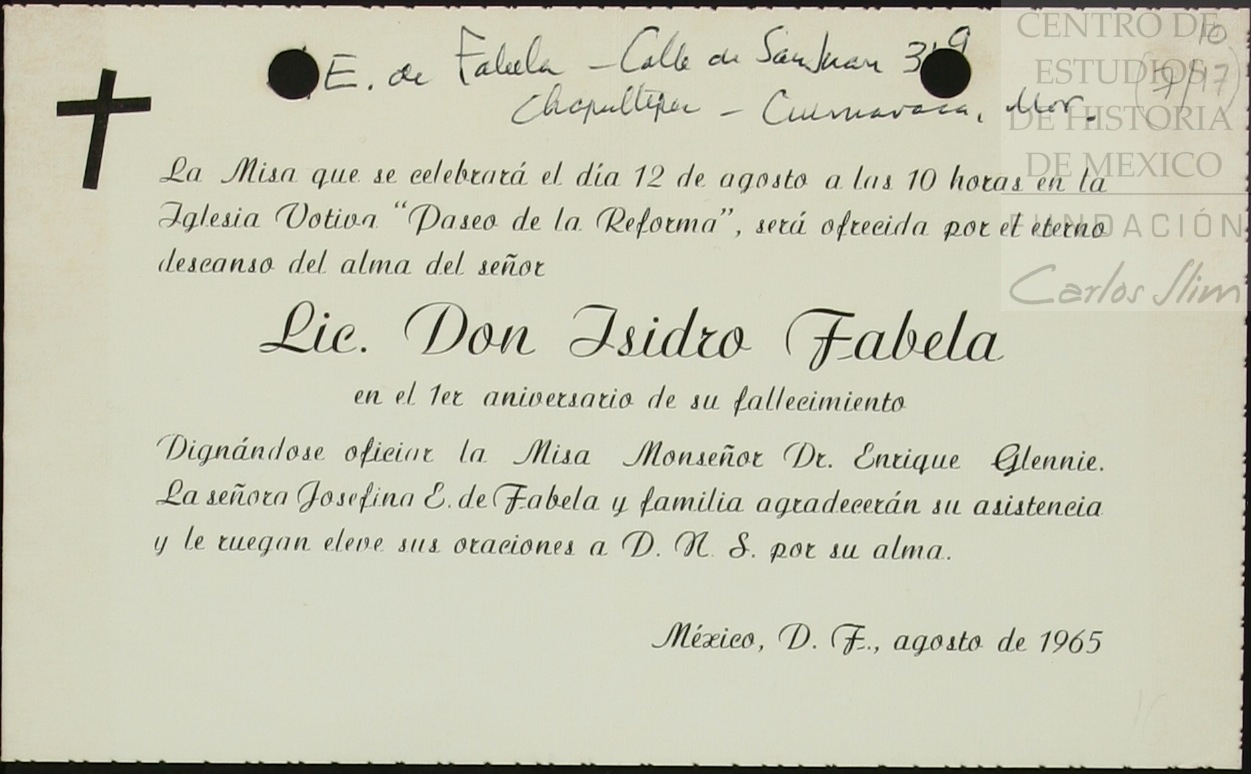 E. de Fabela - Calle de San Juan
Chapultepec - Cuernavaca, Mor.
La Misa que se celebrará el día 12 de agosto a las 10 horas en la
Iglesia Votiva “Paseo de la Reforma”, será ofrecida por el eterno
descanso del alma del señor
Lic. Don Isidro Fabela
en el 1er aniversario de su fallecimiento
Dignándose oficiar la Misa Monseñor Dr. Enrique Glennie.
La señora Josefina E. de Fabela y familia agradecerán su asistencia
y le ruegan eleve sus oraciones a D. N. S. por su alma.
México, D. F., agosto de 1965
CENTRO DE
ESTUDIOS
DE HISTORIA
DE MEXICO
FUNDACIÓN
Carlos Slim